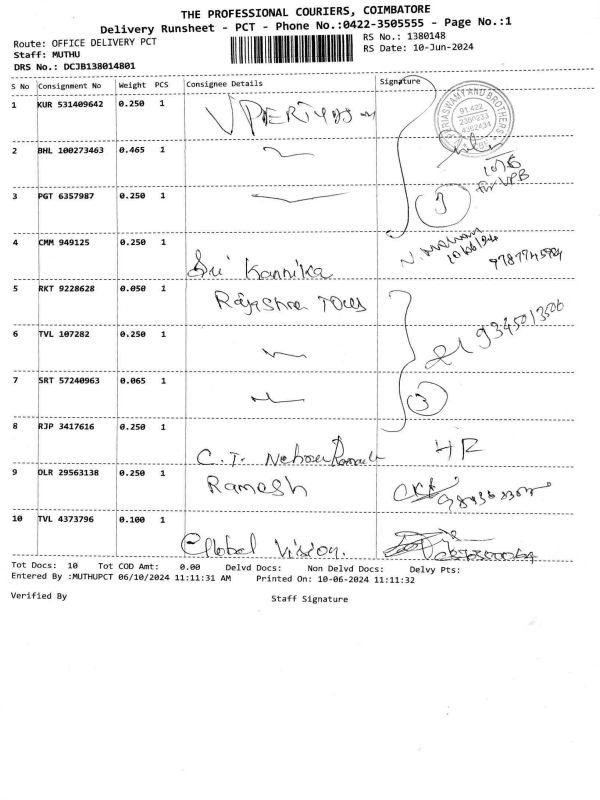 THE PROFESSIONAL COURIERS, COIMBATORE
Delivery Runsheet - PCT - Phone No.:0422-3505555 - Page No.:1
Route: OFFICE DELIVERY PCT
Staff: MUTHU
DRS No.: DCJB138014801
RS No.: 1380148
RS Date: 10-Jun-2024
S No Consignment No Weight PCS Consignee Details Signature
1 KUR 531409642 0.250 1
2 BHL 100273463 0.465 1
3 PGT 6357987 0.250 1
3
4 CMM 949125 0.250 1 Sri Kannika
5 RKT 9228628 0.050 1
6 TVL 107282 0.250 1
7 SRT 57240963 0.065 1
3
8 RJP 3417616 0.250 1 C. T.
9 OLR 29563138 0.250 1 Ramesh
10 TVL 4373796 0.100 1 Global Vision.
Tot Docs: 10 Tot COD Amt: 0.00 Delvd Docs: Non Delvd Docs: Delvy Pts:
Entered By :MUTHUPCT 06/10/2024 11:11:31 AM Printed On: 10-06-2024 11:11:32
Verified By Staff Signature